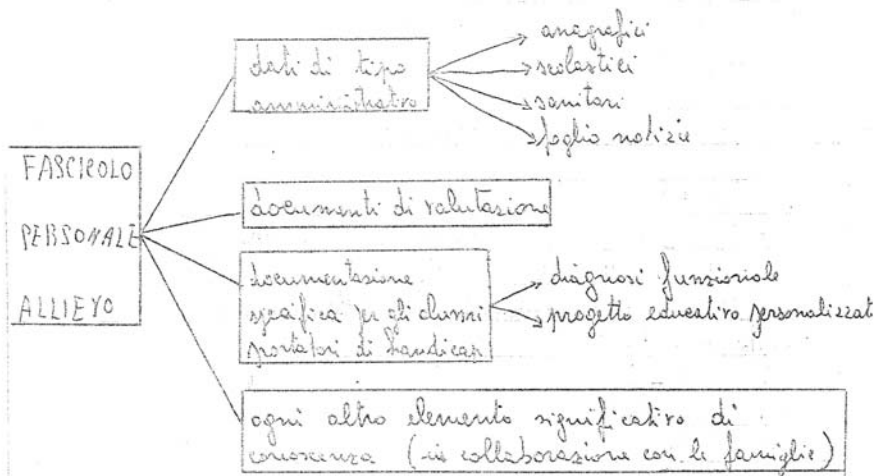 FASCICOLO
PERSONALE
ALLIEVO
dati di tipo
amministrativo
anagrafici
scolastici
sanitari
foglio notizie
documenti di valutazione
documentazione
specifica per gli alunni
portatori di handicap
diagnosi funzionale
progetto educativo personalizzat
ogni altro elemento significativo di
conoscenza (in collaborazione con le famiglie)